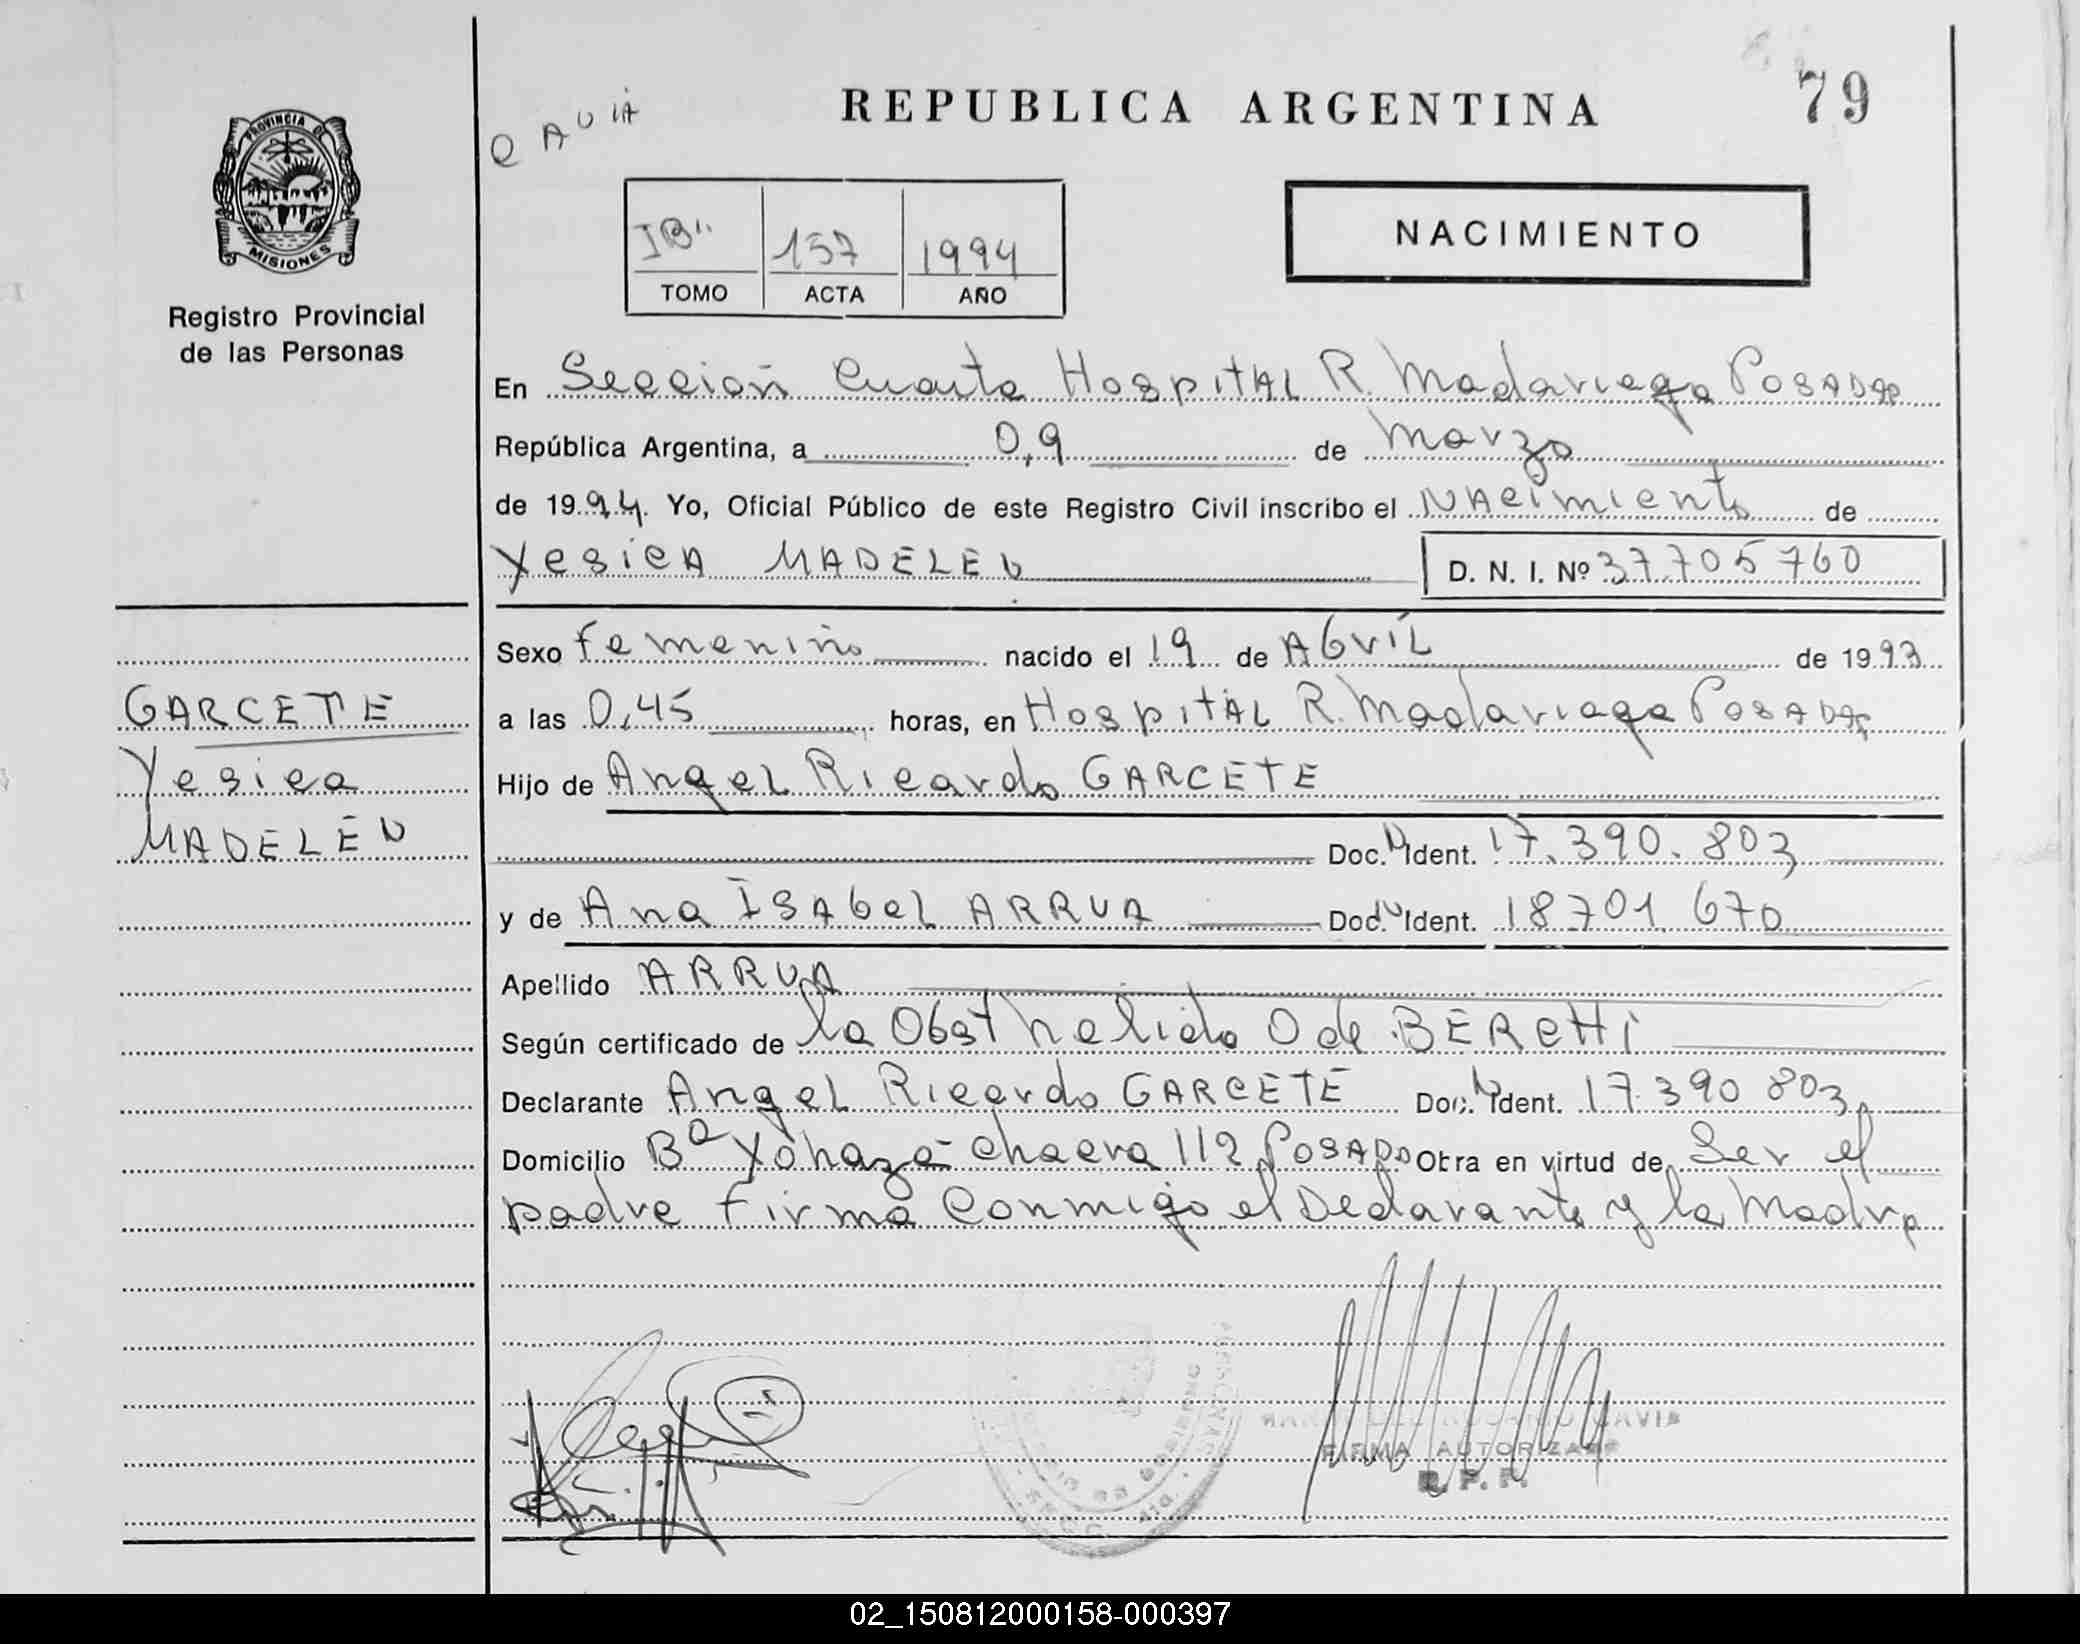 REPUBLICA ARGENTINA
79
CAVIA
PROVINCIA DE
MISIONES
Registro Provincial
de las Personas
IB" 157 1994
TOMO ACTA AÑO
NACIMIENTO
En Sección Cuarta Hospital R. Madariaga Posadas
República Argentina, a 0,9 de Marzo
de 1994. Yo, Oficial Público de este Registro Civil inscribo el NAcimiento de
YesicA MADELEN D. N. I. Nº 37.705760
Sexo femenino nacido el 19 de AbriL de 1993
GARCETE
Yesica
MADELEN
a las 0,45 horas, en Hospital R. Madariaga Posadas
Hijo de Angel Ricardo GARCETE
Doc. N Ident. 17.390.803
y de Ana ISAbel ARRUA Doc. N Ident. 18701670
Apellido ARRUA
Según certificado de la Obst Nelida O de BERetti
Declarante Angel Ricardo GARCETE Doc. N Ident. 17.390 803
Domicilio Bº Yohazá chacra 112 Posad Otra en virtud de Ser el
padre firma conmigo el Declarante y la Madre
CAVIA
FIRMA AUTORIZADA
R. P. P.
02_150812000158-000397